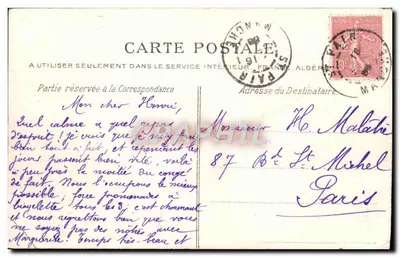 CARTE POSTALE
A UTILISER SEULEMENT DANS LE SERVICE INTÉRIEUR, FRANCE, ALGÉRIE
Partie réservée à la Correspondance
Adresse du Destinataire
ST PAIR
MANCHE
ST PAIR
MANCHE
Mon cher Henri,
Quel calme et quel repos
d'esprit! Je vois que je suis pas
bien loin et cependant les
jours passent bien vite, voilà
à peu près la moitié du congé
de fait. Nous l'occupons le mieux
possible, force promenades à
bicyclette tous les 3, c'est charmant
et nous regrettons bien que vous
ne soyez pas des nôtres avec
Marguerite! Temps très beau et
Monsieur H. Malatré
87 Bd. St. Michel
Paris